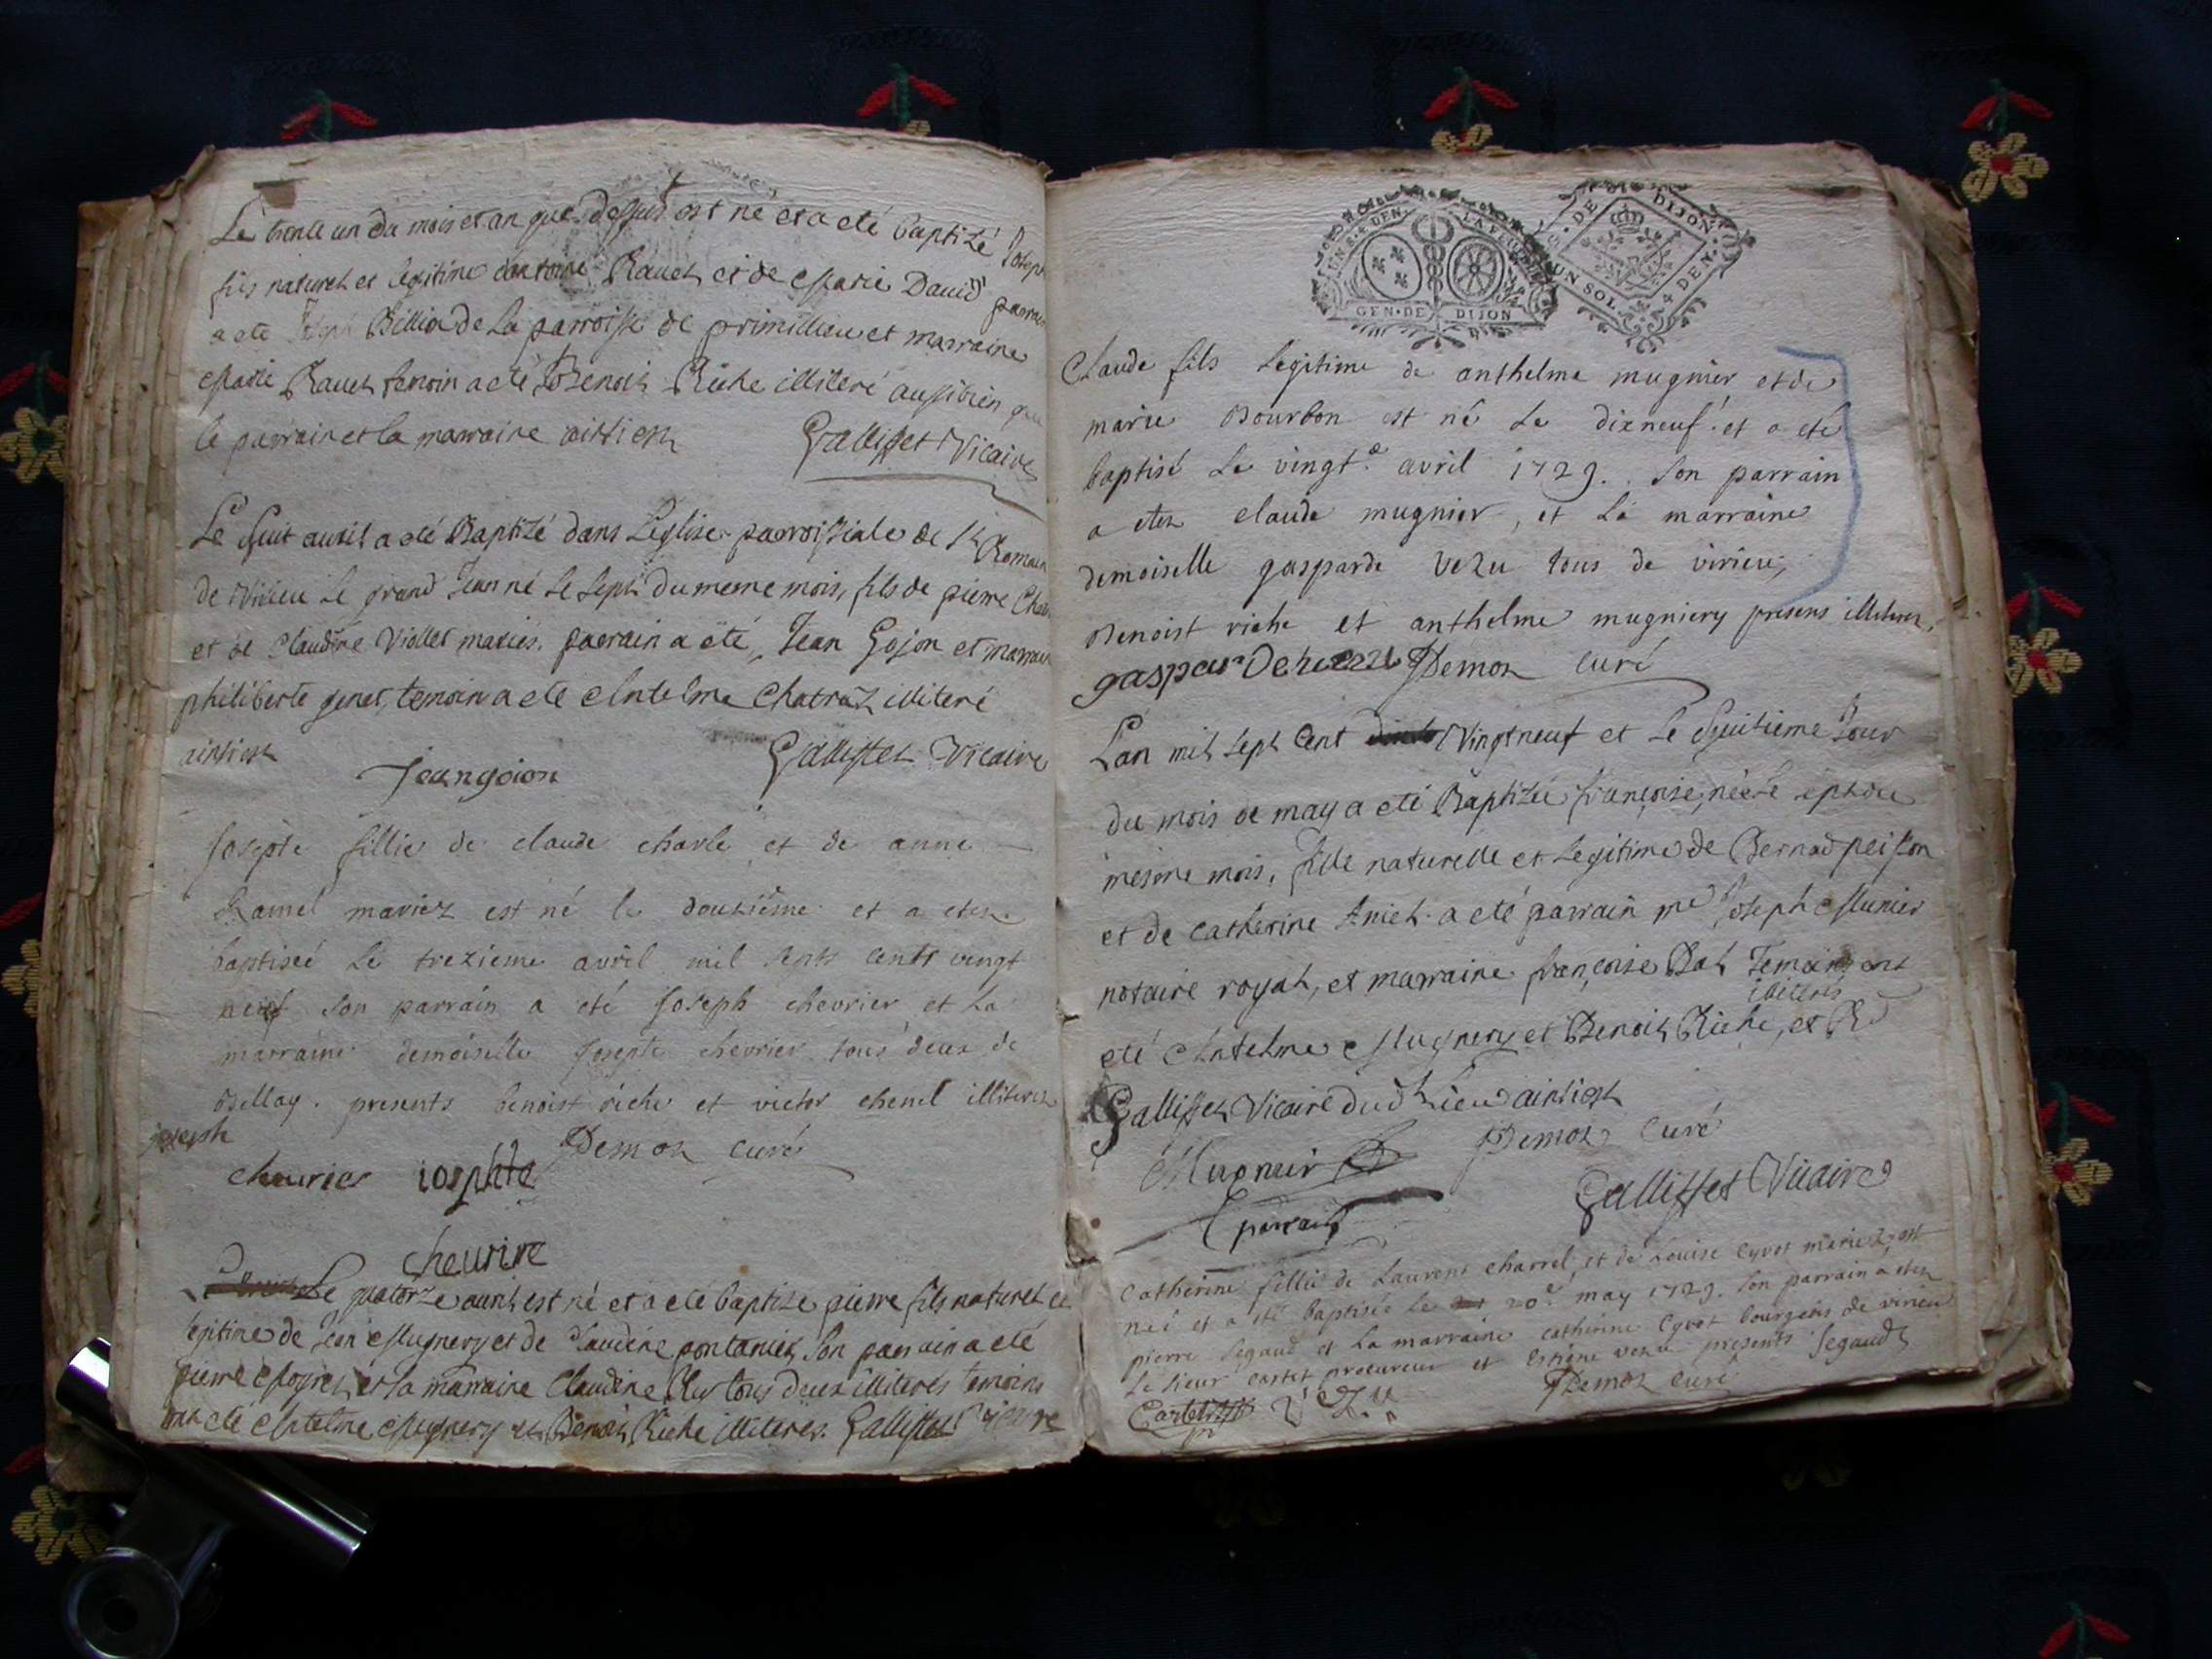 Le trente un du mois et an que dessus est né et a eté baptizé Joseph
fils naturel et legitime d'antoine Rauet et de Marie David parrain
a eté Joseph Billio de la parroisse de primillieu et marraine
Marie Rauet temoin a eté Benoit Riche illiteré aussi bien que
le parrain et la marraine ainsi est
Galliffet Vicaire
Le huit auril a eté Baptizé dans L'eglise parroissiale de St Romain
de Virieu le grand Jean né le sept du meme mois, fils de pierre
et de Claudine Viollet mariés. parrain a eté, Jean Gojon et marraine
philiberte genet, temoin a eté Antelme Chatraz illiteré
ainsi est
Galliffet Vicaire
Jean goion
Josepte fillie de claude charle et de anne
Ramel mariez est né le douzième et a etez
baptiseé le trezieme avril mil septs cents vingt
neuf son parrain a eté Joseph chevrier et La
marraine demoiselle Josepte chevrier tous deux de
Bellay. presents benoist riche et victor chenel illiterez
joseph
cheurier iosphte Demoz curé
cheurire
Le quatorze auril est né et a eté baptize pierre fils naturel et
legitime de Jean Mugnery et de Claudine pontanier, son parrain a eté
pierre et la marraine Claudine tous deux illiterés temoins
ont eté Antelme Mugnery et Benoit Riche illiterés. Galliffet Vicaire
UN S. 4 DEN. LA FEUILLE
GEN. DE DIJON
G. DE DIJON
UN SOL. 4 DEN.
Claude fils legitime de anthelme mugnier et de
marie Bourbon est né le dixneuf et a eté
baptisé le vingt.e avril 1729. son parrain
a etez claude mugnier, et la marraine
demoiselle gasparde vezu tous de virieu,
Benoist riche et anthelme mugniery presens illiterez.
Demoz curé
L'an mil sept cent vingt neuf et le huitieme Jour
du mois de may a eté Baptizée françoise, née le sept du
mesme mois, fille naturelle et legitime de Bernad peisson
et de Catherine Aniel a eté parrain me Joseph Munier
notaire royal, et marraine françoise Bal Temoins ont
illiterés
eté Antelme Mugnery et Benoit Riche, et Rd
Galliffet Vicaire dud. Lieu ainsi est
Mugnier Demoz Curé
parrain Galliffet Vicaire
Catherine fillie de Laurent charrel, et de Louise Cyvot mariez, est
neé et a eté baptiseé le 20e may 1729. son parrain a etez
pierre segaud et la marraine catherine Cyvot bourgeois de virieu
le sieur cartet procureur et Estiene vezu presents segaud
Demoz curé